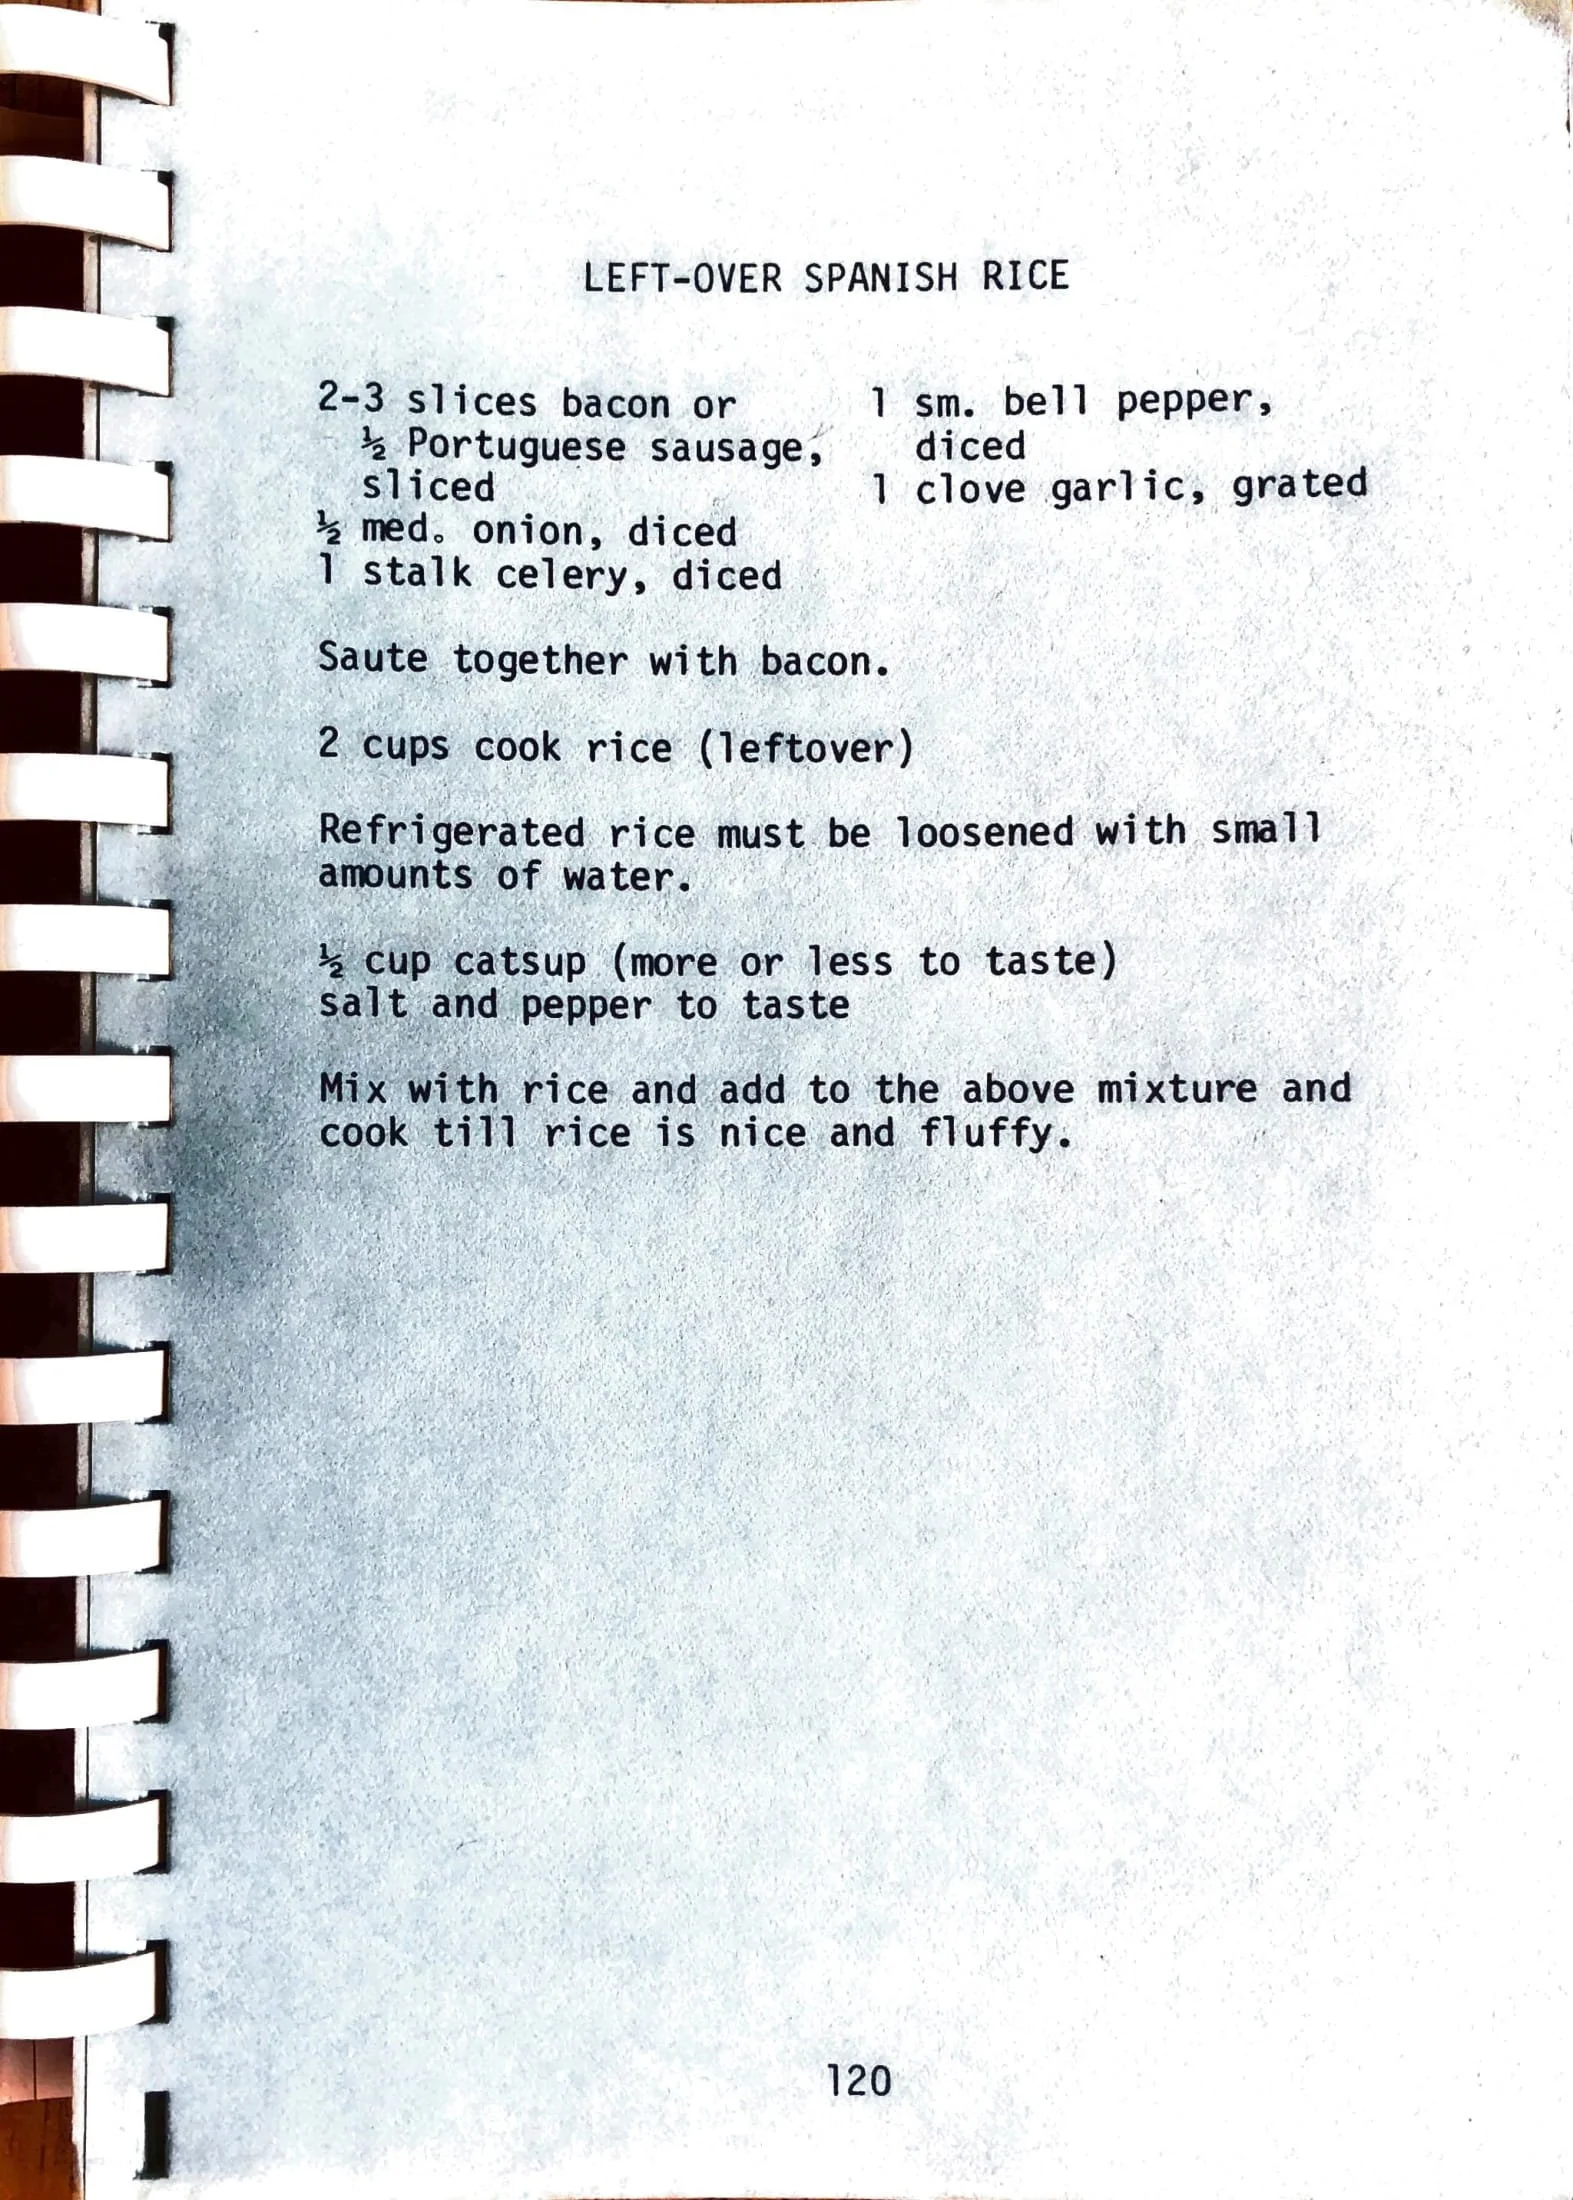 LEFT-OVER SPANISH RICE
2-3 slices bacon or
½ Portuguese sausage,
sliced
½ med. onion, diced
1 stalk celery, diced
1 sm. bell pepper,
diced
1 clove garlic, grated
Saute together with bacon.
2 cups cook rice (leftover)
Refrigerated rice must be loosened with small
amounts of water.
½ cup catsup (more or less to taste)
salt and pepper to taste
Mix with rice and add to the above mixture and
cook till rice is nice and fluffy.
120